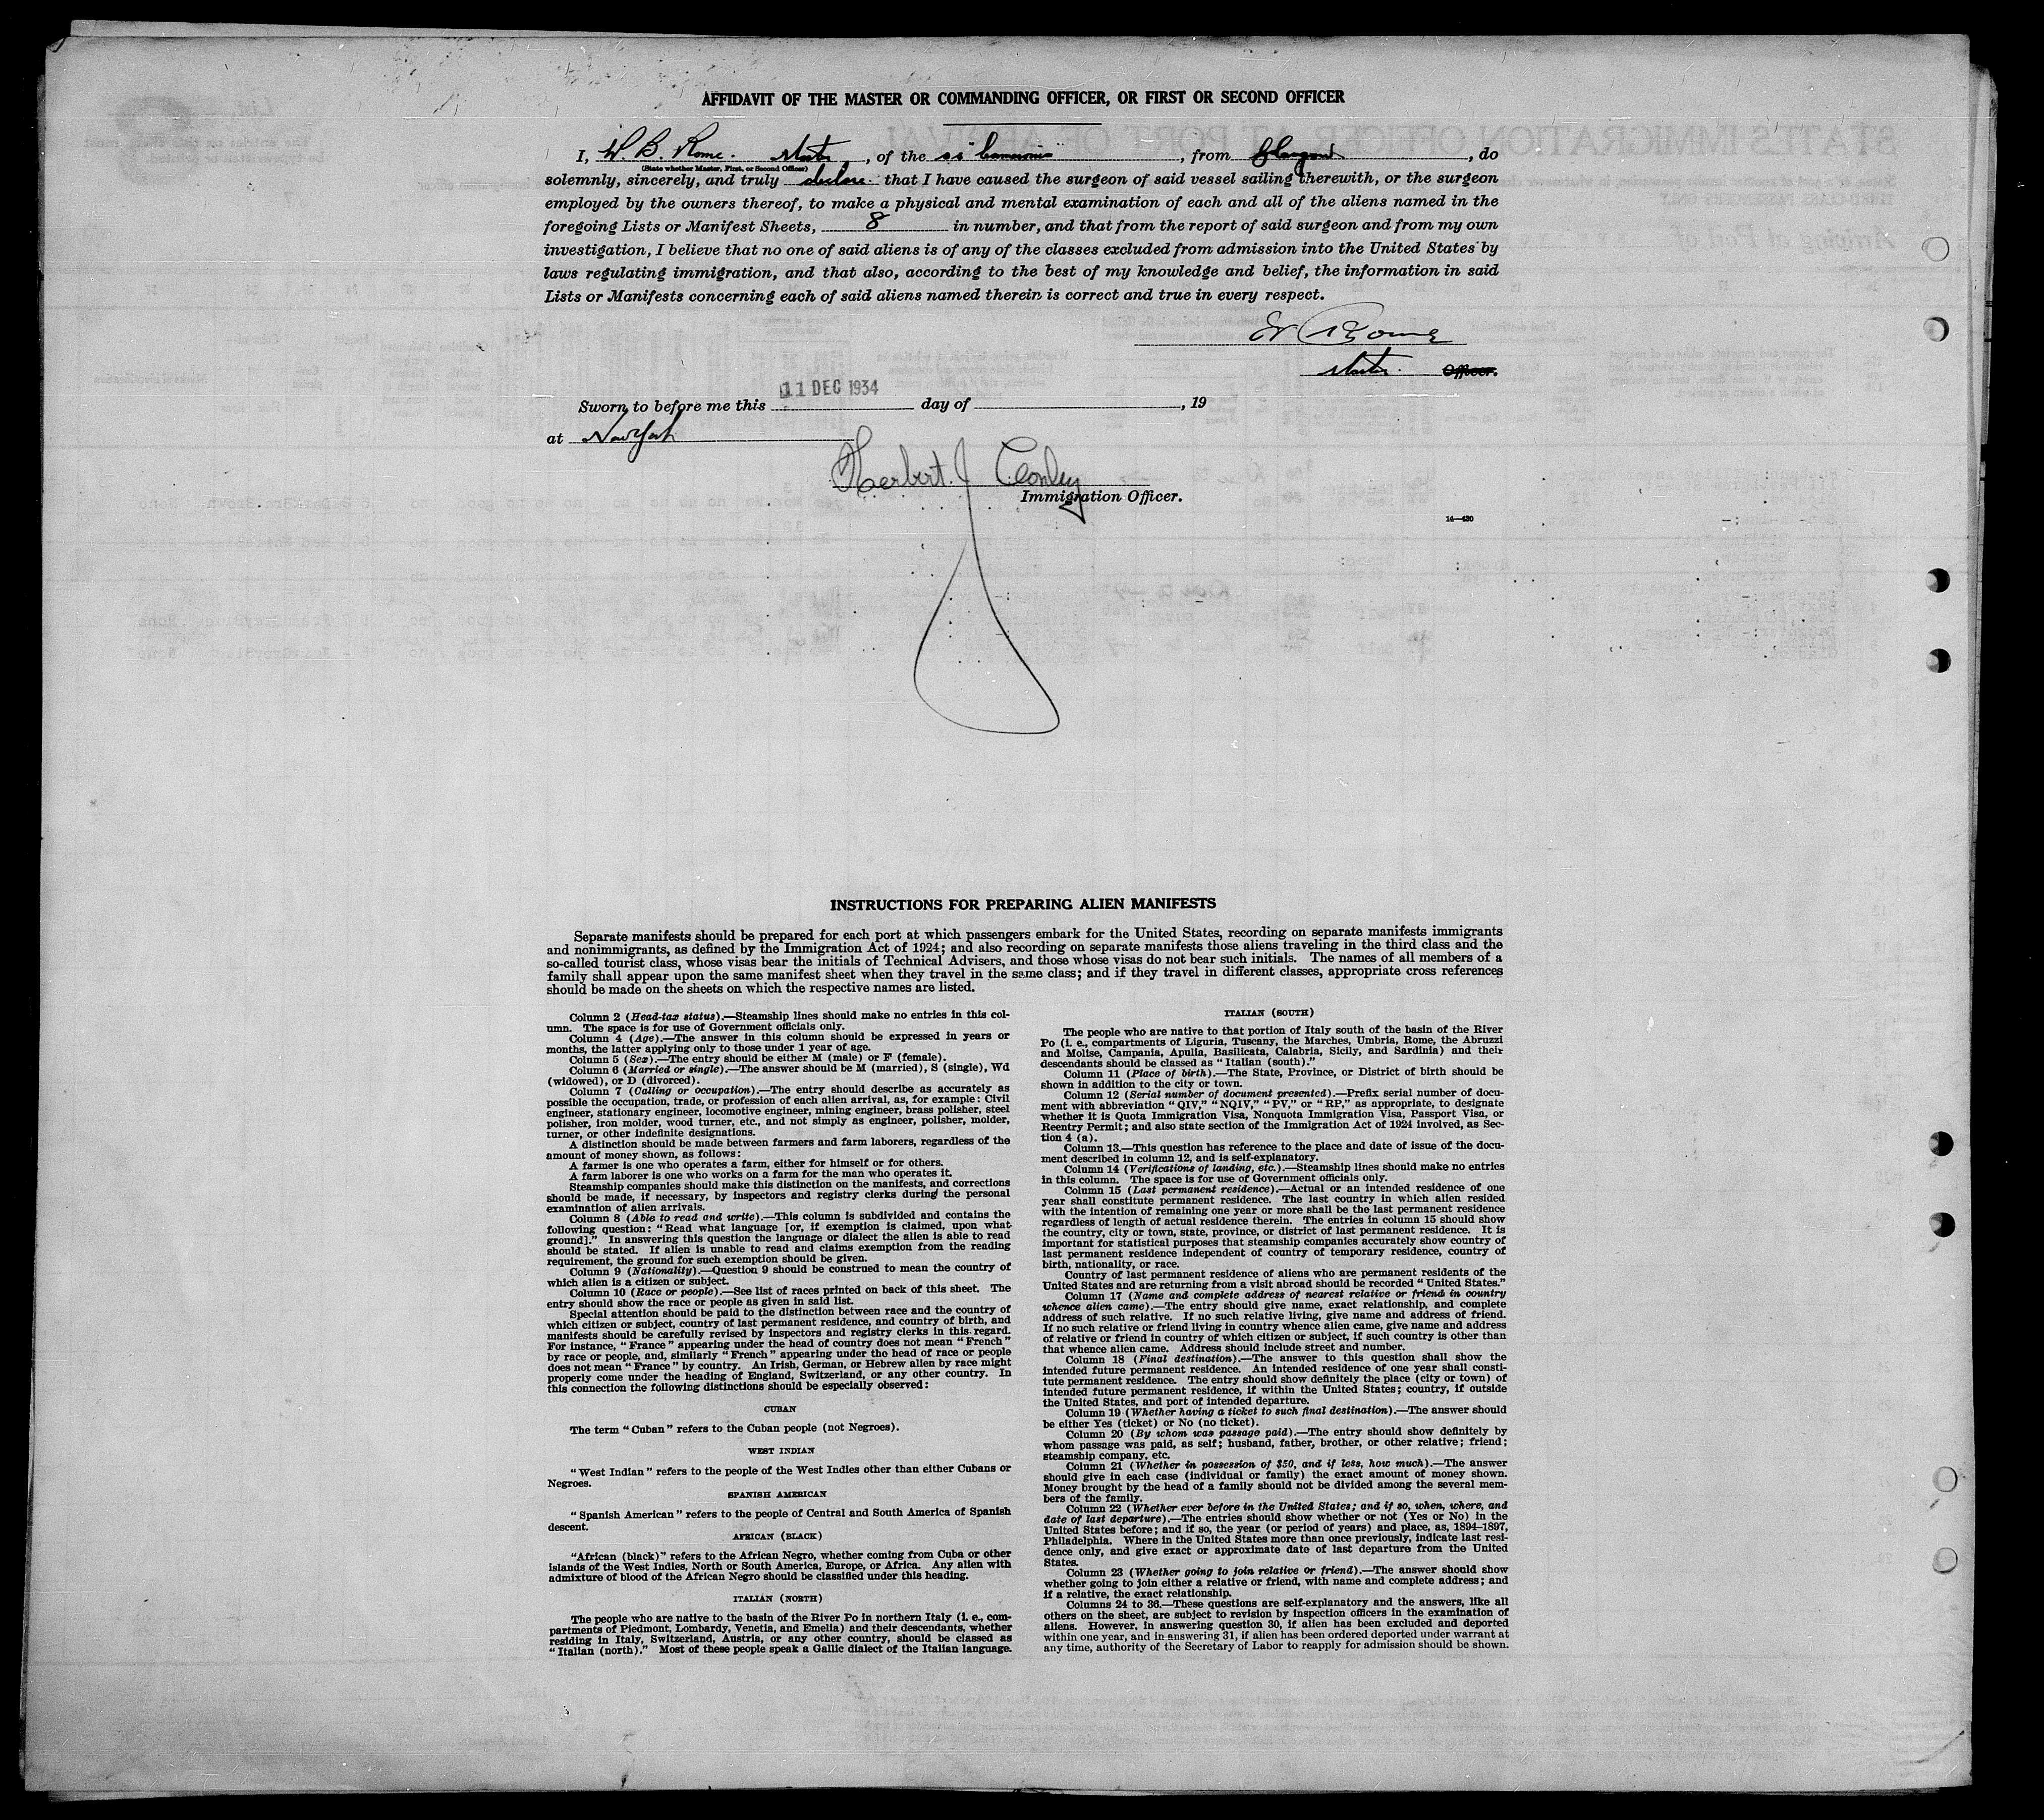 AFFIDAVIT OF THE MASTER OR COMMANDING OFFICER, OR FIRST OR SECOND OFFICER
I, W. B. Rome. Master, of the ss "Cameronia", from Glasgow, do
(State whether Master, First, or Second Officer)
solemnly, sincerely, and truly declare that I have caused the surgeon of said vessel sailing therewith, or the surgeon
employed by the owners thereof, to make a physical and mental examination of each and all of the aliens named in the
foregoing Lists or Manifest Sheets, 8 in number, and that from the report of said surgeon and from my own
investigation, I believe that no one of said aliens is of any of the classes excluded from admission into the United States by
laws regulating immigration, and that also, according to the best of my knowledge and belief, the information in said
Lists or Manifests concerning each of said aliens named therein is correct and true in every respect.
W B Rome
Master. Officer.
11 DEC 1934
Sworn to before me this day of , 19
at New York
Herbert J Conley
Immigration Officer.
14—420
INSTRUCTIONS FOR PREPARING ALIEN MANIFESTS
Separate manifests should be prepared for each port at which passengers embark for the United States, recording on separate manifests immigrants
and nonimmigrants, as defined by the Immigration Act of 1924; and also recording on separate manifests those aliens traveling in the third class and the
so-called tourist class, whose visas bear the initials of Technical Advisers, and those whose visas do not bear such initials. The names of all members of a
family shall appear upon the same manifest sheet when they travel in the same class; and if they travel in different classes, appropriate cross references
should be made on the sheets on which the respective names are listed.
Column 2 (Head-tax status).—Steamship lines should make no entries in this col-
umn. The space is for use of Government officials only.
Column 4 (Age).—The answer in this column should be expressed in years or
months, the latter applying only to those under 1 year of age.
Column 5 (Sex).—The entry should be either M (male) or F (female).
Column 6 (Married or single).—The answer should be M (married), S (single), Wd
(widowed), or D (divorced).
Column 7 (Calling or occupation).—The entry should describe as accurately as
possible the occupation, trade, or profession of each alien arrival, as, for example: Civil
engineer, stationary engineer, locomotive engineer, mining engineer, brass polisher, steel
polisher, iron molder, wood turner, etc., and not simply as engineer, polisher, molder,
turner, or other indefinite designations.
A distinction should be made between farmers and farm laborers, regardless of the
amount of money shown, as follows:
A farmer is one who operates a farm, either for himself or for others.
A farm laborer is one who works on a farm for the man who operates it.
Steamship companies should make this distinction on the manifests, and corrections
should be made, if necessary, by inspectors and registry clerks during the personal
examination of alien arrivals.
Column 8 (Able to read and write).—This column is subdivided and contains the
following question: "Read what language [or, if exemption is claimed, upon what
ground]." In answering this question the language or dialect the alien is able to read
should be stated. If alien is unable to read and claims exemption from the reading
requirement, the ground for such exemption should be given.
Column 9 (Nationality).—Question 9 should be construed to mean the country of
which alien is a citizen or subject.
Column 10 (Race or people).—See list of races printed on back of this sheet. The
entry should show the race or people as given in said list.
Special attention should be paid to the distinction between race and the country of
which citizen or subject, country of last permanent residence, and country of birth, and
manifests should be carefully revised by inspectors and registry clerks in this regard.
For instance, "France" appearing under the head of country does not mean "French"
by race or people, and, similarly "French" appearing under the head of race or people
does not mean "France" by country. An Irish, German, or Hebrew alien by race might
properly come under the heading of England, Switzerland, or any other country. In
this connection the following distinctions should be especially observed:
CUBAN
The term "Cuban" refers to the Cuban people (not Negroes).
WEST INDIAN
"West Indian" refers to the people of the West Indies other than either Cubans or
Negroes.
SPANISH AMERICAN
"Spanish American" refers to the people of Central and South America of Spanish
descent.
AFRICAN (BLACK)
"African (black)" refers to the African Negro, whether coming from Cuba or other
islands of the West Indies, North or South America, Europe, or Africa. Any alien with
admixture of blood of the African Negro should be classified under this heading.
ITALIAN (NORTH)
The people who are native to the basin of the River Po in northern Italy (i. e., com-
partments of Piedmont, Lombardy, Venetia, and Emelia) and their descendants, whether
residing in Italy, Switzerland, Austria, or any other country, should be classed as
"Italian (north)." Most of these people speak a Gallic dialect of the Italian language.
ITALIAN (SOUTH)
The people who are native to that portion of Italy south of the basin of the River
Po (i. e., compartments of Liguria, Tuscany, the Marches, Umbria, Rome, the Abruzzi
and Molise, Campania, Apulia, Basilicata, Calabria, Sicily, and Sardinia) and their
descendants should be classed as "Italian (south)."
Column 11 (Place of birth).—The State, Province, or District of birth should be
shown in addition to the city or town.
Column 12 (Serial number of document presented).—Prefix serial number of docu-
ment with abbreviation "QIV," "NQIV," "PV," or "RP," as appropriate, to designate
whether it is Quota Immigration Visa, Nonquota Immigration Visa, Passport Visa, or
Reentry Permit; and also state section of the Immigration Act of 1924 involved, as Sec-
tion 4 (a).
Column 13.—This question has reference to the place and date of issue of the docu-
ment described in column 12, and is self-explanatory.
Column 14 (Verifications of landing, etc.).—Steamship lines should make no entries
in this column. The space is for use of Government officials only.
Column 15 (Last permanent residence).—Actual or an intended residence of one
year shall constitute permanent residence. The last country in which alien resided
with the intention of remaining one year or more shall be the last permanent residence
regardless of length of actual residence therein. The entries in column 15 should show
the country, city or town, state, province, or district of last permanent residence. It is
important for statistical purposes that steamship companies accurately show country of
last permanent residence independent of country of temporary residence, country of
birth, nationality, or race.
Country of last permanent residence of aliens who are permanent residents of the
United States and are returning from a visit abroad should be recorded "United States."
Column 17 (Name and complete address of nearest relative or friend in country
whence alien came).—The entry should give name, exact relationship, and complete
address of such relative. If no such relative living, give name and address of friend.
If no such relative or friend living in country whence alien came, give name and address
of relative or friend in country of which citizen or subject, if such country is other than
that whence alien came. Address should include street and number.
Column 18 (Final destination).—The answer to this question shall show the
intended future permanent residence. An intended residence of one year shall consti-
tute permanent residence. The entry should show definitely the place (city or town) of
intended future permanent residence, if within the United States; country, if outside
the United States, and port of intended departure.
Column 19 (Whether having a ticket to such final destination).—The answer should
be either Yes (ticket) or No (no ticket).
Column 20 (By whom was passage paid).—The entry should show definitely by
whom passage was paid, as self; husband, father, brother, or other relative; friend;
steamship company, etc.
Column 21 (Whether in possession of $50, and if less, how much).—The answer
should give in each case (individual or family) the exact amount of money shown.
Money brought by the head of a family should not be divided among the several mem-
bers of the family.
Column 22 (Whether ever before in the United States; and if so, when, where, and
date of last departure).—The entries should show whether or not (Yes or No) in the
United States before; and if so, the year (or period of years) and place, as, 1894–1897,
Philadelphia. Where in the United States more than once previously, indicate last resi-
dence only, and give exact or approximate date of last departure from the United
States.
Column 23 (Whether going to join relative or friend).—The answer should show
whether going to join either a relative or friend, with name and complete address; and
if a relative, the exact relationship.
Columns 24 to 36.—These questions are self-explanatory and the answers, like all
others on the sheet, are subject to revision by inspection officers in the examination of
aliens. However, in answering question 30, if alien has been excluded and deported
within one year, and in answering 31, if alien has been ordered deported under warrant at
any time, authority of the Secretary of Labor to reapply for admission should be shown.